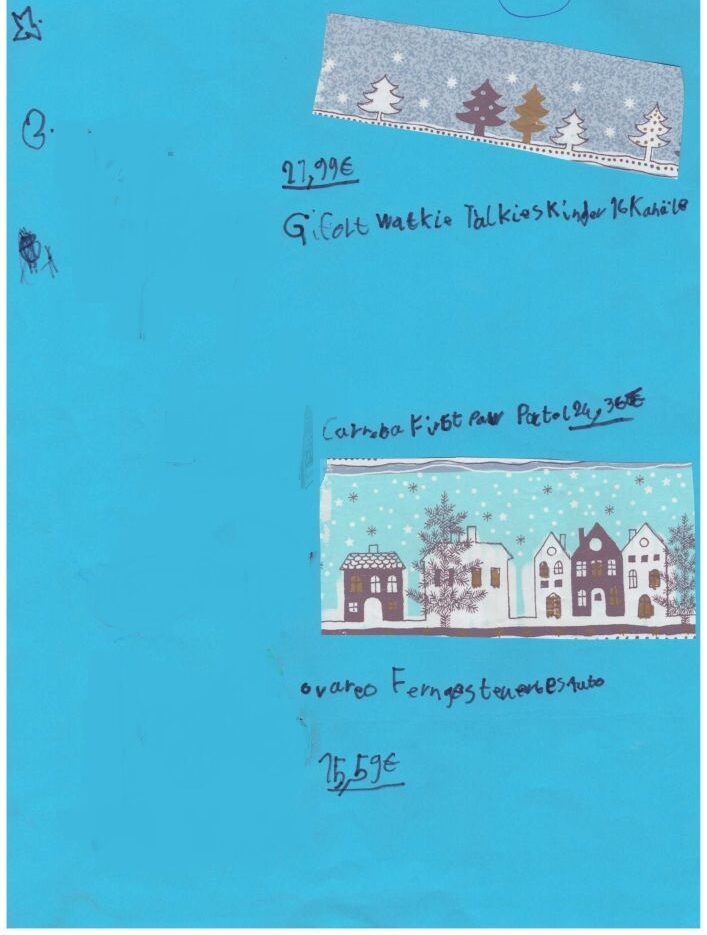 27,99€
Gifolt Walkie Talkies Kinder 16 Kanäle
Carreba First Paw Patol 24,36€
ovareo Ferngesteuertes Auto
15,59€